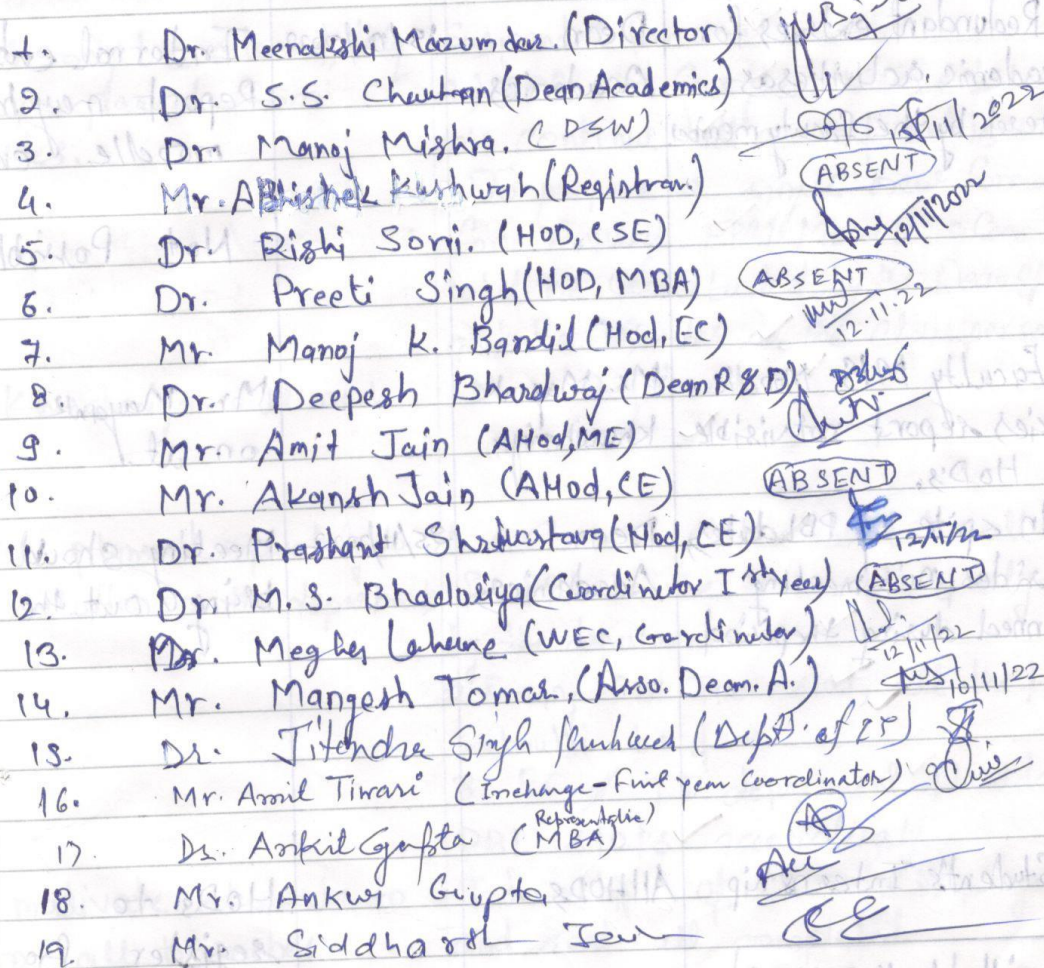 1. Dr. Meenakshi Mazumdar. (Director)
2. Dr. S.S. Chauhan (Dean Academics)
3. Dr. Manoj Mishra. (DSW) 12/11/2022
4. Mr. Abhishek Kushwah (Registrar.) ABSENT
5. Dr. Rishi Soni. (HOD, CSE) 12/11/2022
6. Dr. Preeti Singh (HOD, MBA) ABSENT
7. Mr. Manoj K. Bandil (Hod, EC) 12.11.22
8 Dr. Deepesh Bhardwaj (Dean R&D)
9. Mr. Amit Jain (AHod, ME)
10. Mr. Akansh Jain (AHod, CE) ABSENT
11. Dr. Prashant Shrivastava (Hod, CE) 12/11/22
12. Dr. M.S. Bhadoriya (Coordinator I st year) ABSENT
13. Dr. Megha (WEC, Coordinator) 12/11/22
14. Mr. Mangesh Tomar, (Asso. Dean. A.) 10/11/22
15. Dr. Jitendra Singh (Dept. of IT)
16. Mr. Anil Tiwari (Incharge-First year Coordinator)
17 Dr. Ankit Gupta (MBA Representative)
18. Mr. Ankur Gupta
19. Mr. Siddharth Jain